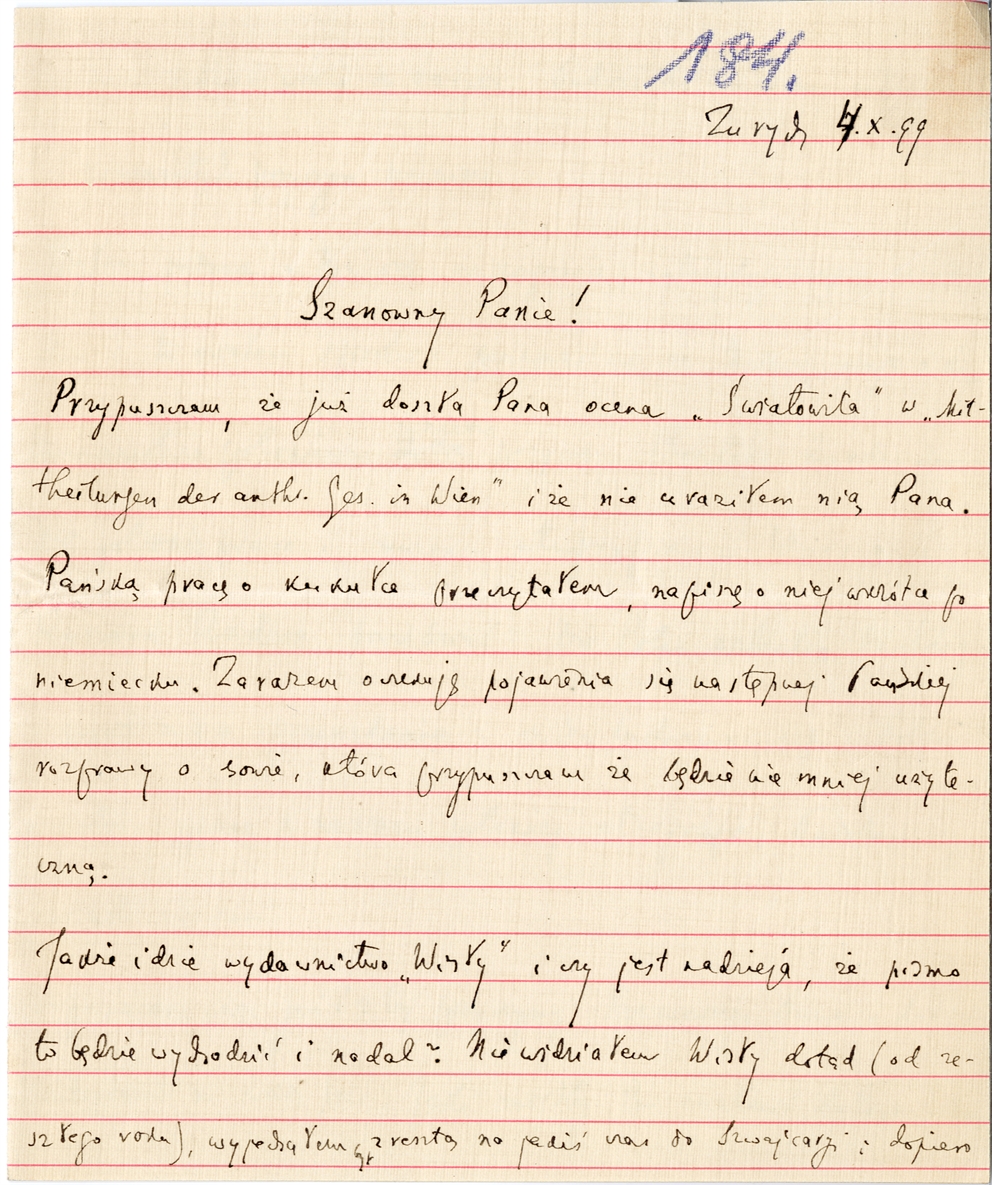 184.
Zurych 4.X.99
Szanowny Panie!
Przypuszczam, że już doszła Pana ocena „Światowita" w „Mit-
theilungen der anthr. Ges. in Wien" i że nie uraziłem nią Pana.
Pańską pracę o kukułce przeczytałem, napiszę o niej wkrótce po
niemiecku. Zarazem oczekuję pojawienia się następnej Pańskiej
rozprawy o sowie, która przypuszczam że będzie nie mniej użyte-
czną.
Jakże idzie wydawnictwo „Wisły" i czy jest nadzieja, że pismo
to będzie wychodzić i nadal? Nie widziałem Wisły dotąd (od ze-
szłego roku), wyjechałem zresztą na jakiś czas do Szwajcarji i dopiero